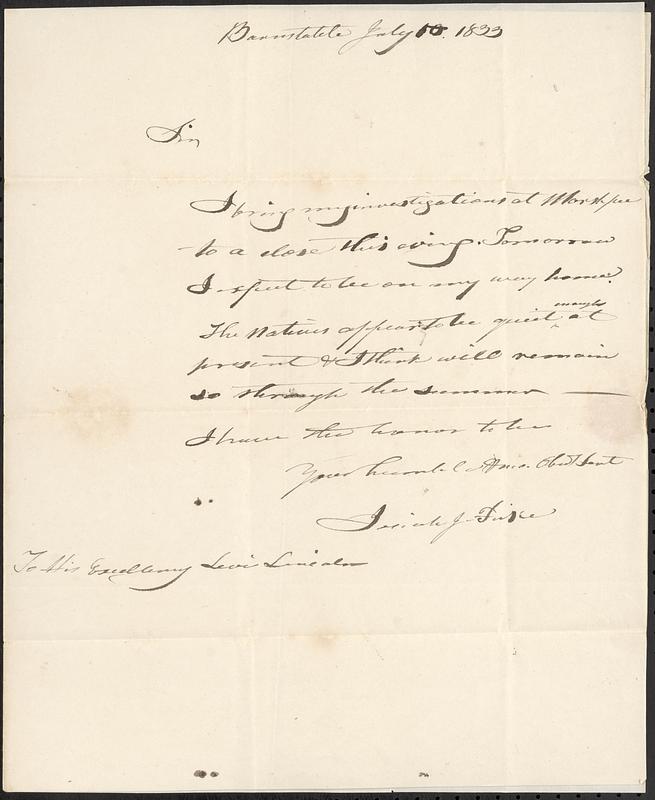 Barnstable July 10. 1833
Sir
I bring my investigations at Marshpee
to a close this eving. Tomorrow
I expect to be on my way home.
enough
The Natives appear to be quiet ^ at
present & I think will remain
so through the summer —
I have the honor to be
Your humbl & Obt Sert
Josiah J. Fiske
To His Excellency Levi Lincoln